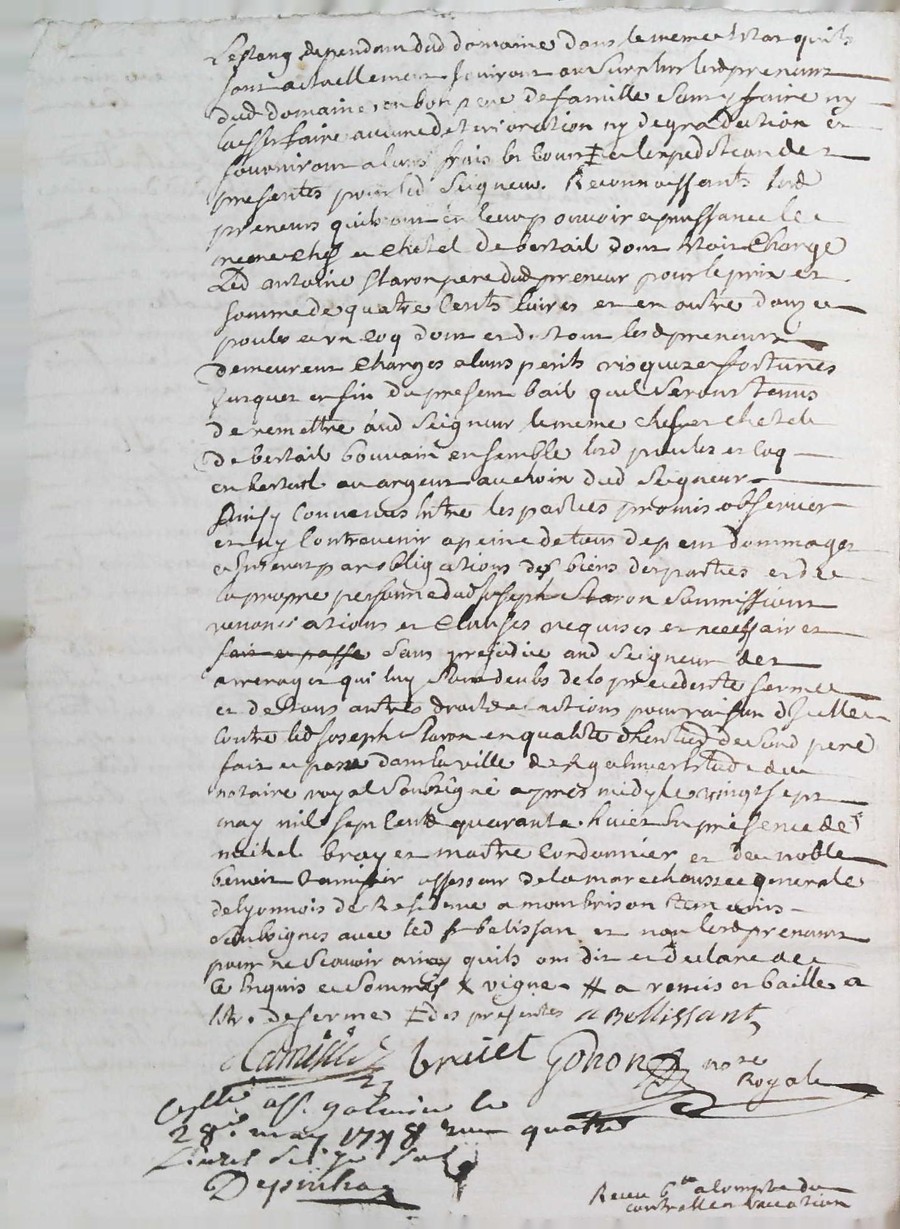 Lestang dependant dud domaine dans le meme estat quils
sont actuellement jouiront au surplus lesd preneurs
dud domaine en bon pere de famille sans y faire ny
laisser faire aucune deterioration ny degradation et
fourniront a leurs frais les et expedition des
presentes pour led Seigneur. Reconnoissants lesd
preneurs quils ont en leur pouvoir et puissance le
meme chef et chetel de bestail dont etoit chargé
Led antoine Staron pere dud preneur pour le prix et
somme de quatre cents livres et en outre douze
poules et un coq dont et du tout lesd preneurs
demeurent chargés a leurs perils risques et fortunes
jusques en fin du present bail quils seront tenus
de remettre aud Seigneur le meme chef et chetel
de bestail ensemble lesd poules et coq
en bestail ou argent au choix dud Seigneur
Ainsy convenus entre les parties promis observer
et ny contrevenir a peine de tous depens dommages
et interets par obligations des biens des parties et de
la propre personne dud Joseph Staron soumissions
renonciations et clauses requises et necessaires
fait et passé sans prejudice aud Seigneur des
arrerages qui luy sont deubs de la precedente ferme
et de tous autres droits et actions pour raison dIcelle
contre led Joseph Staron en qualité dheritier de Sond pere
fait et passé dans la ville de St galmier Etude du
notaire royal Soubsigné apres midy le vingt sept
may mil sept cents quarante huict En présence de Sr
michel bruyet maitre Cordonnier et de noble
benoit assesseur de la marechaussee generale
de lyonnois de Residence a montbrison temoins
Soubsignés avec led Sr belissan et non lesd preneurs
pour ne Scavoir ainsy quils ont dit et declaré de
ce Enquis et Sommés x vigne # a remis et baillé a
titre de ferme ‡ des presentes a Bellissant
bruiet Gonon nore
Royal
Collé a St. galmier le
28e. may 1748 reçu quatre
livres seize sols
Recu 6s a compte du
controlle et vacation